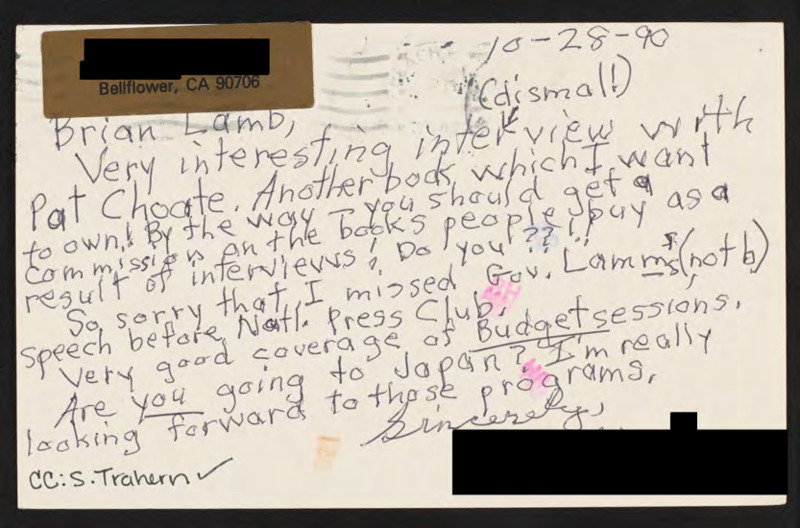 Bellflower, CA 90706
10-28-90
(dismal!)
Brian Lamb,
Very interesting interview with
Pat Choate. Another book which I want
to own! By the way - you should get a
commission on the books people buy as a
result of interviews! Do you??!!
So sorry that I missed Gov. Lamm's (not b)
speech before Natl. Press Club.
Very good coverage of Budget sessions.
Are you going to Japan? I'm really
looking forward to those programs.
Sincerely,
CC: S. Trahern ✓